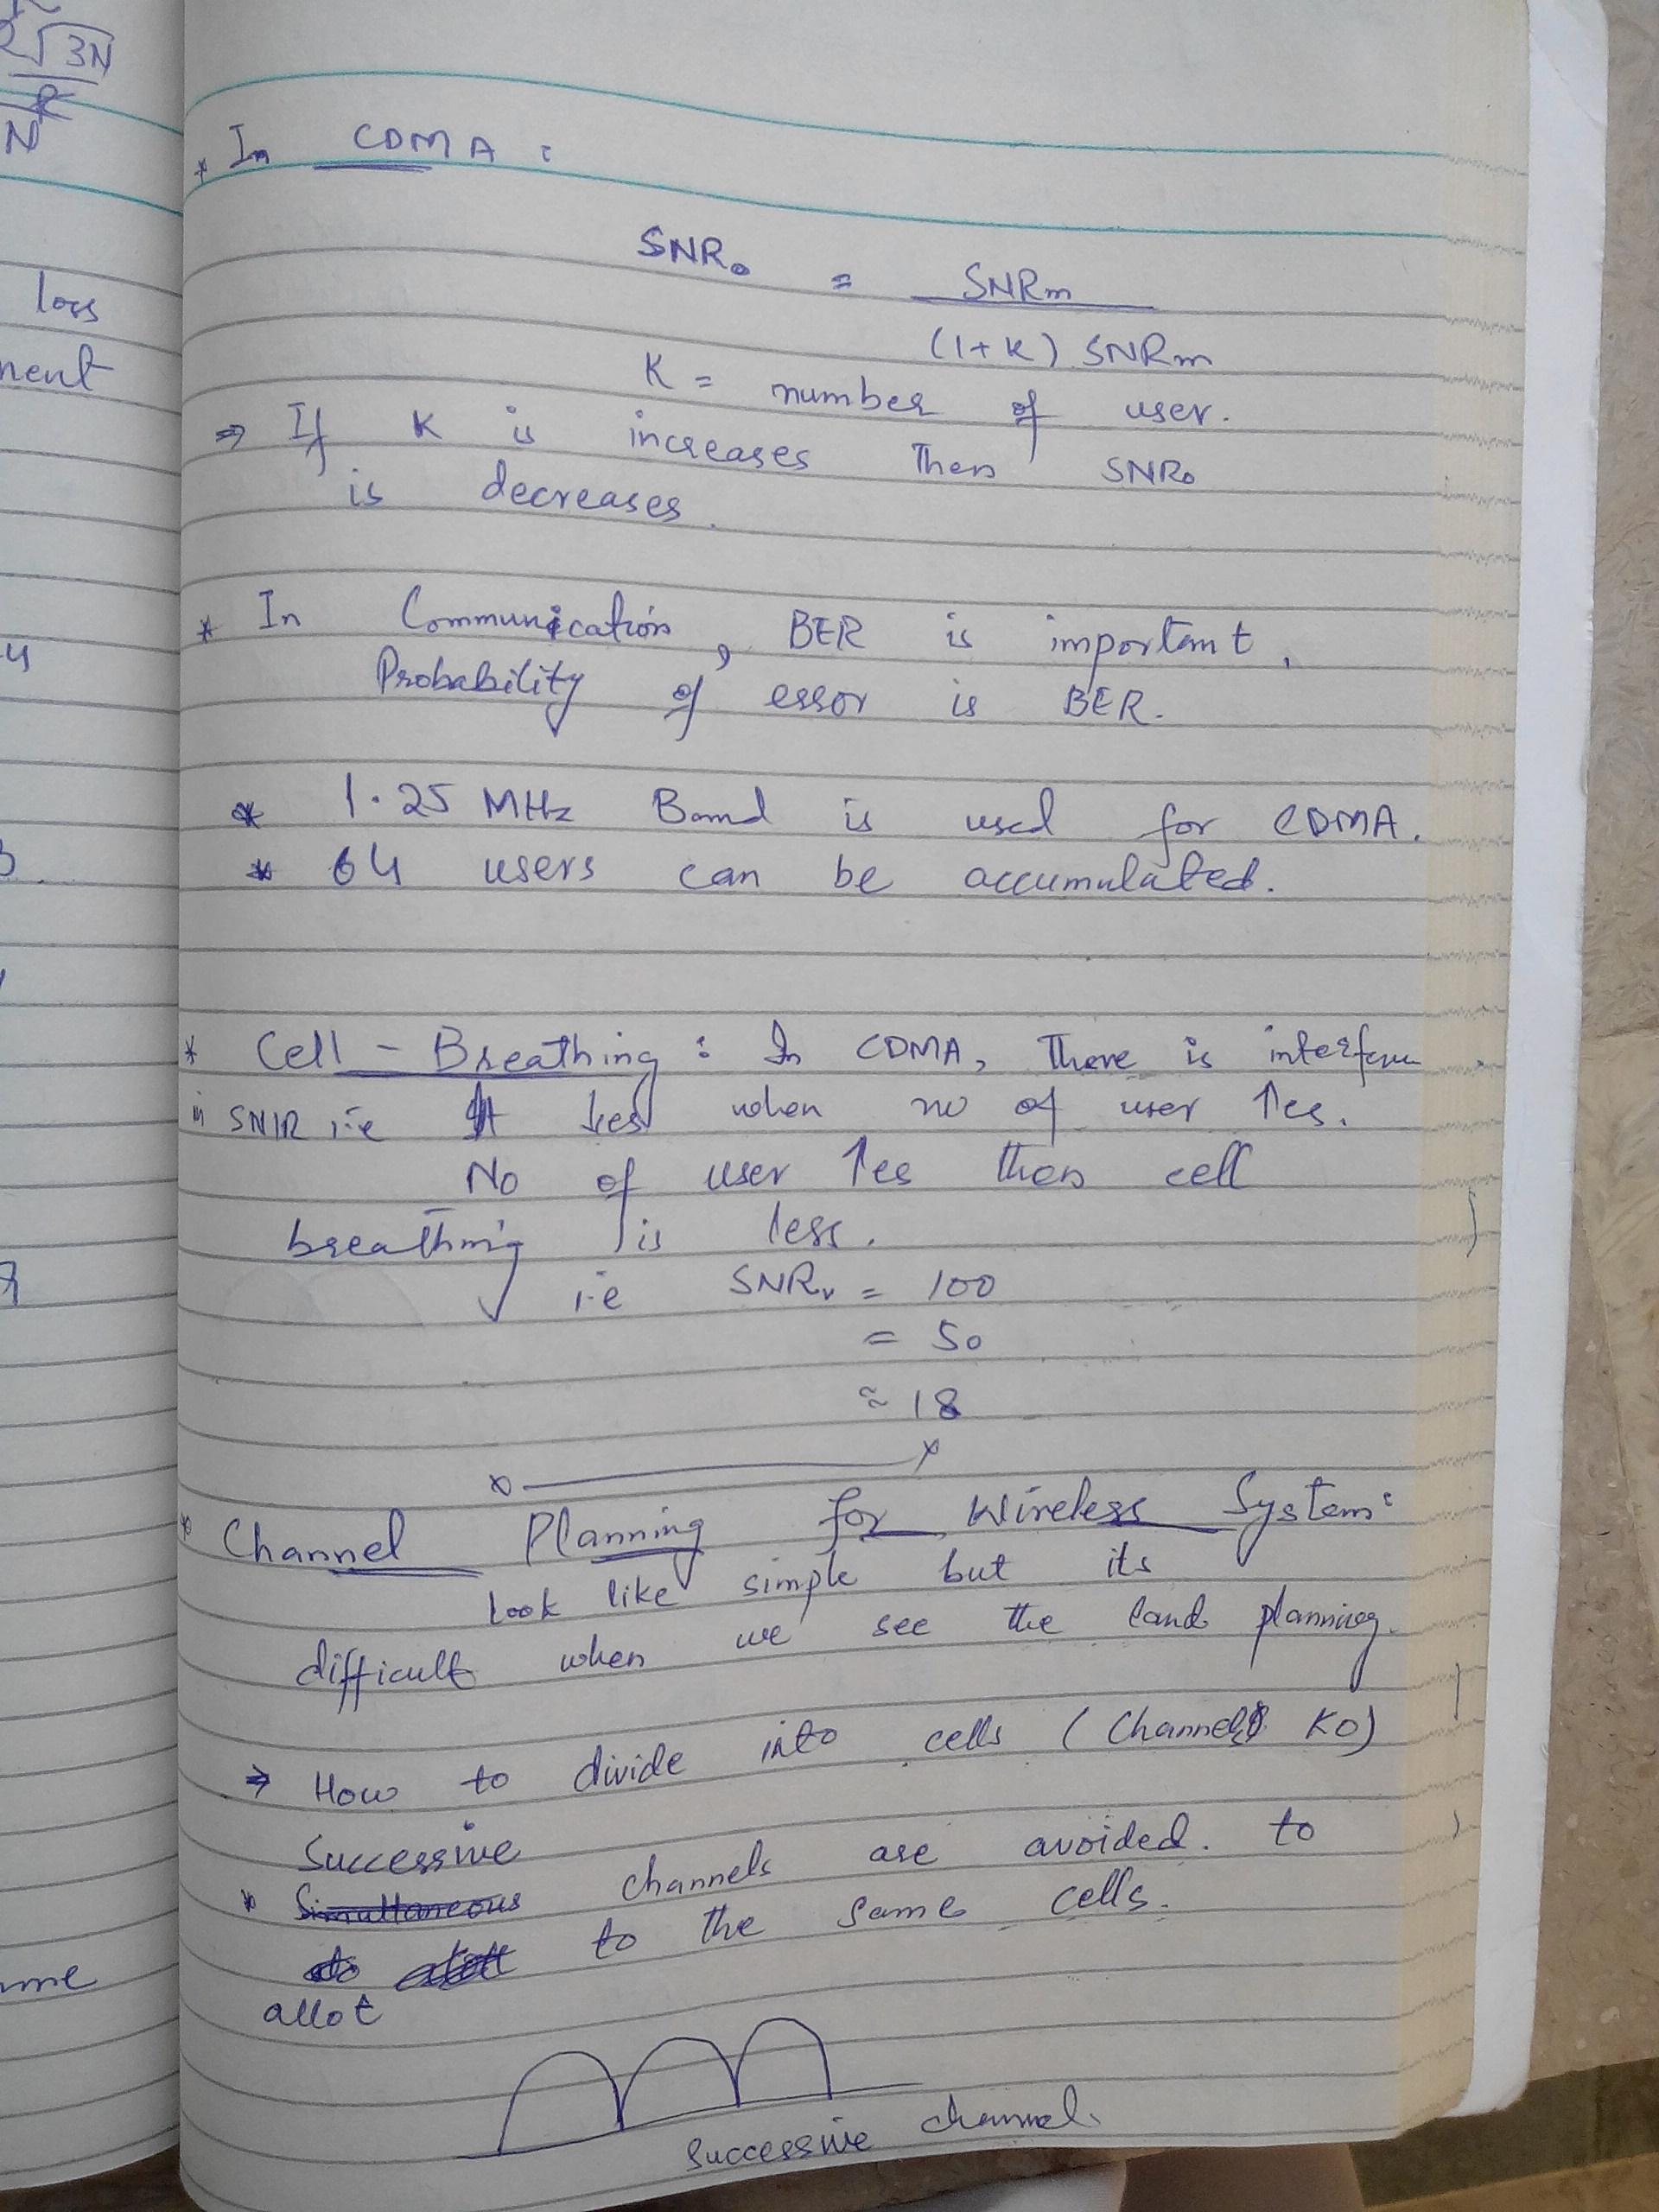 2√3N
R
N
loss
nent
ume
* In CDMA :
SNRo = SNRm
(1+K) SNRm
K = number of user.
⇒ If K is increases Then SNRo
is decreases.
* In Communication, BER is important.
Probability of essor is BER.
* 1.25 MHz Band is used for CDMA.
* 64 users can be accumulated.
* Cell - Breathing : In CDMA, There is interferen
in SNIR i.e ↓es when no of user ↑es.
No of user ↑es then cell
breathing is less.
i.e SNRv = 100
= 50
≈ 18
x———x
* Channel Planning for Wireless System:
Look like simple but its
difficult when we see the land planning.
⇒ How to divide into cells (Channels KO)
Successive
* Simultaneous channels are avoided. to
to the same cells.
allot
Successive channel.